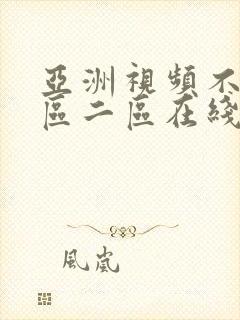 亞洲視頻不
區二區在綫
風嵐